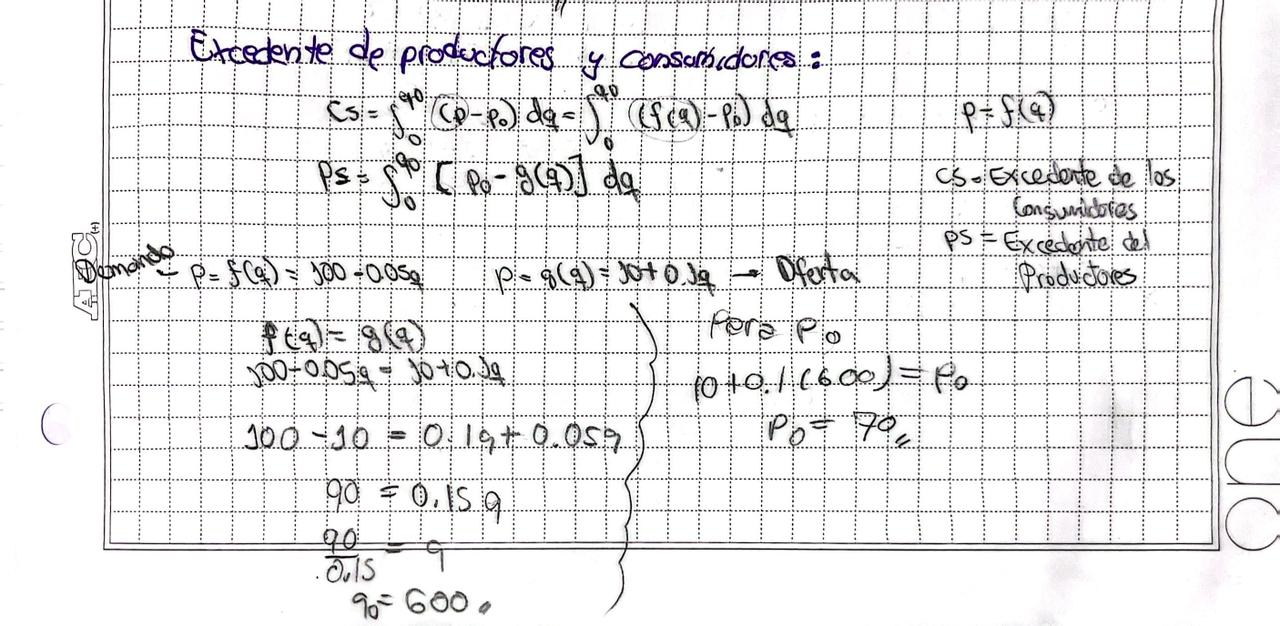 Excedente de productores y consumidores:
CS = ∫₀^q0 (p - p₀) dq = ∫₀^q0 (f(q) - p₀) dq
p = f(q)
PS = ∫₀^q0 [p₀ - g(q)] dq
CS = Excedente de los
Consumidores
PS = Excedente del
Productores
Demanda - p = f(q) = 100 - 0.05q
p = g(q) = 10 + 0.1q → Oferta
f(q) = g(q)
100 - 0.05q = 10 + 0.1q
100 - 10 = 0.1q + 0.05q
90 = 0.15q
90/0.15 = q
q₀ = 600
Para P₀
10 + 0.1(600) = P₀
P₀ = 70
one